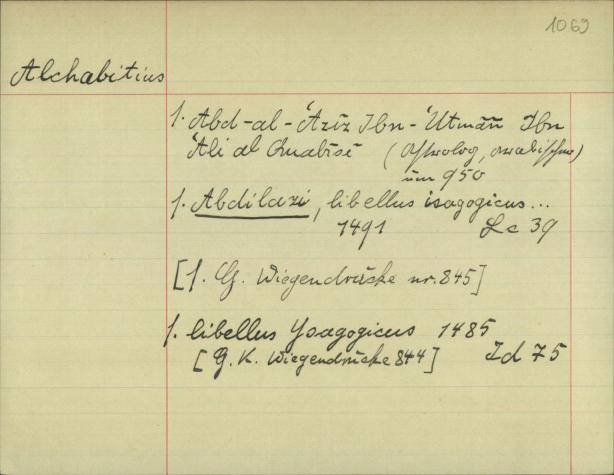 1069
Alchabitius
s. Abd-al-'Azīz Ibn-'Utmān Ibn
'Ali al Quabīsi (Astrolog, arabischer)
um 950
s. Abdilazi, libellus isagogicus...
1491 Lc 39
[s. G. Wiegendrucke nr. 845]
s. libellus Ysagogicus 1485
[G. K. Wiegendrucke 844] Id 75